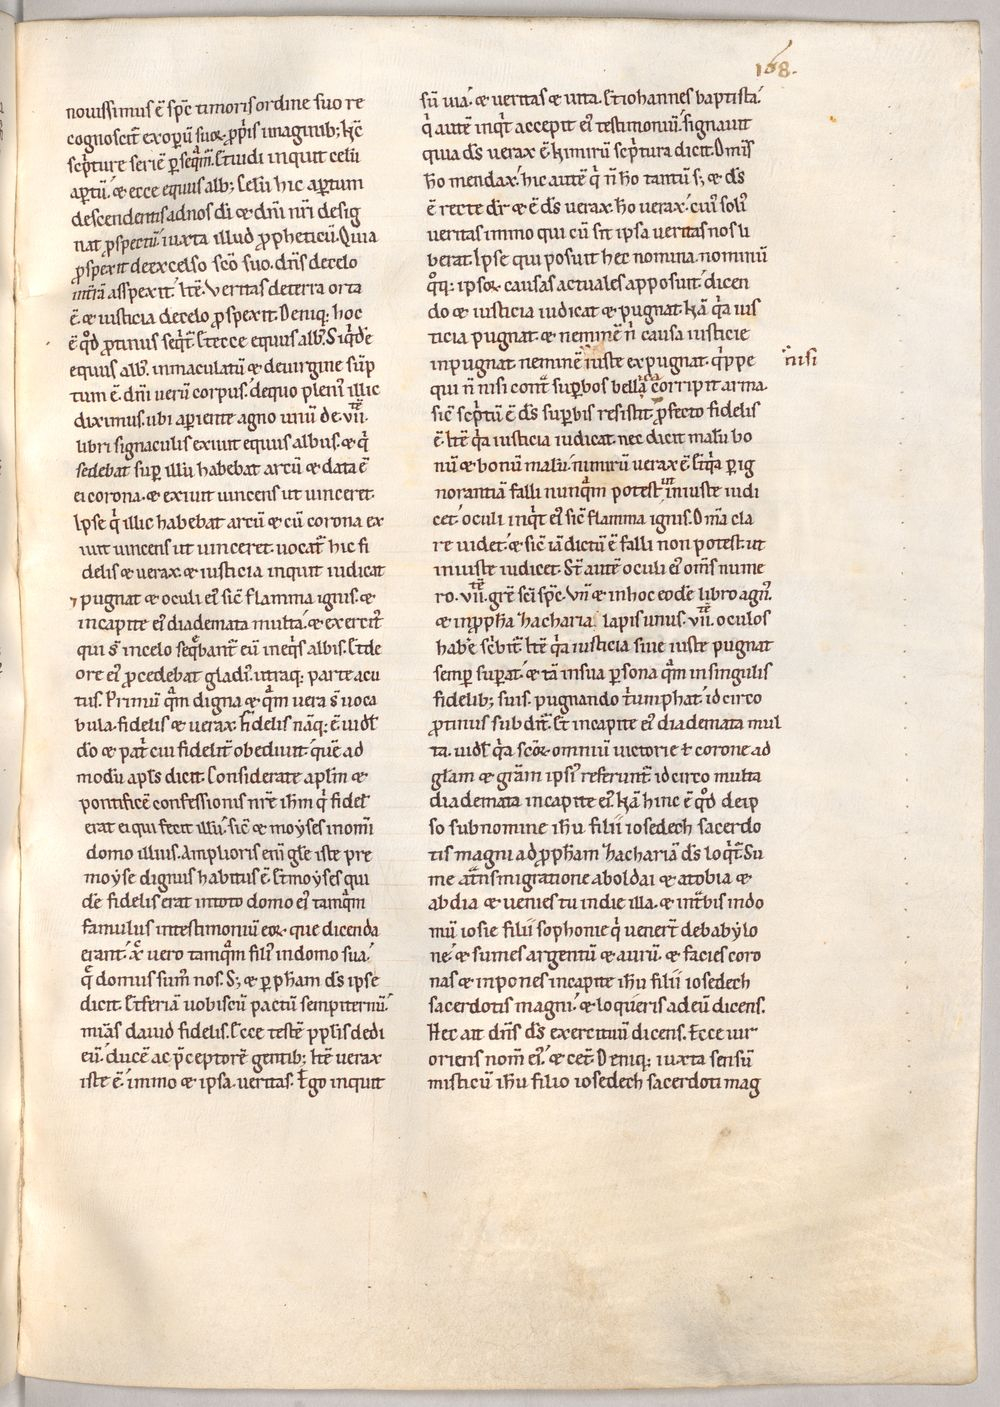 168.
novissimus ē sp̄c timoris ordine suo re
cognoscit̄ ex operū suoꝝ ꝓp̄ris imaginib; hc̄
sc̄pture seriē ꝑseq̄m̄. Et uidi inquit celū
aꝑtū. & ecce equus alb;. Celū hic aꝑtum
descendentis ad nos dī & dn̄i nr̄i desig
nat ꝓspectū iuxta illud ꝓpheticū. Quia
ꝓspexit de excelso sc̄o suo. dn̄s de celo
in trā asspexit. Itē. Veritas de terra orta
ē. & iusticia de celo ꝓspexit. Deniq; hoc
ē qd̄ ꝓtinus seq̄t̄. Et ecce equus alb;. Siq̄de
equus alb;. inmaculatū & de uirgine sūp
tum ē. dn̄i uerū corpus. de quo pleni; illic
diximus. ubi aꝑiente agno unū de .vii.tē
libri signaculis exiuit equus albus. & q̄
sedebat suꝑ illū habebat arcū & data ē
ei corona. & exiuit uincens ut uinceret.
Ipse q̄ illic habebat arcū & cū corona ex
iuit uincens ut uinceret. uocat̄ hic fi
delis & uerax. & iusticia inquit iudicat
⁊ pugnat & oculi ei; sic̄ flamma ignis. &
in capite ei; diademata multa. & exercit;
qui s̄ in celo seq̄bant̄ eū in eq̄s albis. Et de
ore ei; ꝓcedebat gladi; utraq; parte acu
tus. Primū q̄m digna & q̄m uera s̄ uoca
bula. fidelis & uerax. Fidelis nāq; ē. uidl̄
dō & pat̄ cui fidelit̄ obediuit. quē ad
modū apl̄s dicit. Considerate apl̄m &
pontificē confessionis nr̄e ih̄m q̄ fidel̄
erat ei qui fecit illū. sic̄ & moyses in om̄i
domo illius. Amplioris eni gl̄e iste pre
moyse dignus habitus ē. Et moyses qui
dē fidelis erat in toto domo ei; tamq̄m
famulus in testimoniū eoꝝ que dicenda
erant. xp̄c uero tamq̄m fili; in domo sua.
q̄ domus sum; nos. S; & ꝑ ꝓpham ds̄ ipse
dicit. Et feriā uobiscū pactū sempiternū.
mīas dauid fidelis. Ecce testē ppl̄is dedi
eū. ducē ac p̄ceptorē gentib;. Itē uerax
iste ē. immo & ipsa ueritas. Ego inquit
sū uia. & ueritas & uita. Et iohannes baptista.
q̄ autē inq̄t accepit ei; testimoniū. signauit
quia ds̄ uerax ē. Nimirū sc̄ptura dicit. Omīs
hō mendax. hic autē q̄ n̄ hō tantū s; & ds̄
ē recte dr̄ & ē ds̄ uerax. hō uerax. cui; soli;
ueritas immo qui cū sit ipsa ueritas nos li
berat. Ipse qui posuit hec nomina. nominū
qq; ipsoꝝ causas actuales apposuit. dicen
do & iusticia iudicat & pugnat. Nā q̄a ius
ticia pugnat & neminē n̄ causa iusticie
inpugnat. neminē iniuste expugnat. q̄ppe
n̄isi
qui n̄ nisi cont̄ suꝑbos bella cā corripit arma.
sic̄ sc̄ptū ē ds̄ suꝑbis resistit. ꝓfecto fidelis
ē. Itē q̄a iusticia iudicat. nec dicit malū bo
nū & bonū malū. nimirū uerax ē. Et q̄a ꝑ ig
norantiā falli nunq̄m potest ut iniuste iudi
cet. oculi inq̄t ei; sic̄ flamma ignis. Om̄a cla
re uidet. & sic̄ iā dictū ē falli non potest. ut
iniuste iudicet. St̄ autē oculi ei; om̄s nume
ro .vii.tē gr̄e sc̄i sp̄c. Vn̄ & in hoc eodē libro agn;.
& in ꝓpha zacharia. lapis unus .vii.tē oculos
habe sc̄bit̄. Itē q̄a iusticia siue iuste pugnat
semꝑ suꝑat. & tā in sua ꝑsona q̄m in singulis
fidelib; suis. pugnando t̄umphat. idcirco
ꝓtinus subdit̄. Et in capite ei; diademata mul
ta. uidl̄ q̄a sc̄oꝝ omniū uictorie & corone ad
gl̄am & gr̄am ipsi; referunt̄. idcirco multa
diademata in capite ei;. Nā hinc ē qd̄ de ip
so sub nomine ih̄u filii iosedech sacerdo
tis magni ad ꝓpham zachariā ds̄ loq̄t̄. Su
me a t̄nsmigratione ab oldai & a tobia &
ab dia & uenies tu in die illa. & int̄bis in do
mū iosie filii sophonie q̄ uener̄t de babylo
ne. & sumes argentū & aurū. & facies coro
nas & inpones in capite ih̄u filii iosedech
sacerdotis magni. & loqueris ad eū dicens.
Hec ait dn̄s ds̄ exercituū dicens. Ecce uir
oriens nom̄ ei;. & cet̄. Deniq; iuxta sensū
misticū ih̄u filio iosedech sacerdoti mag